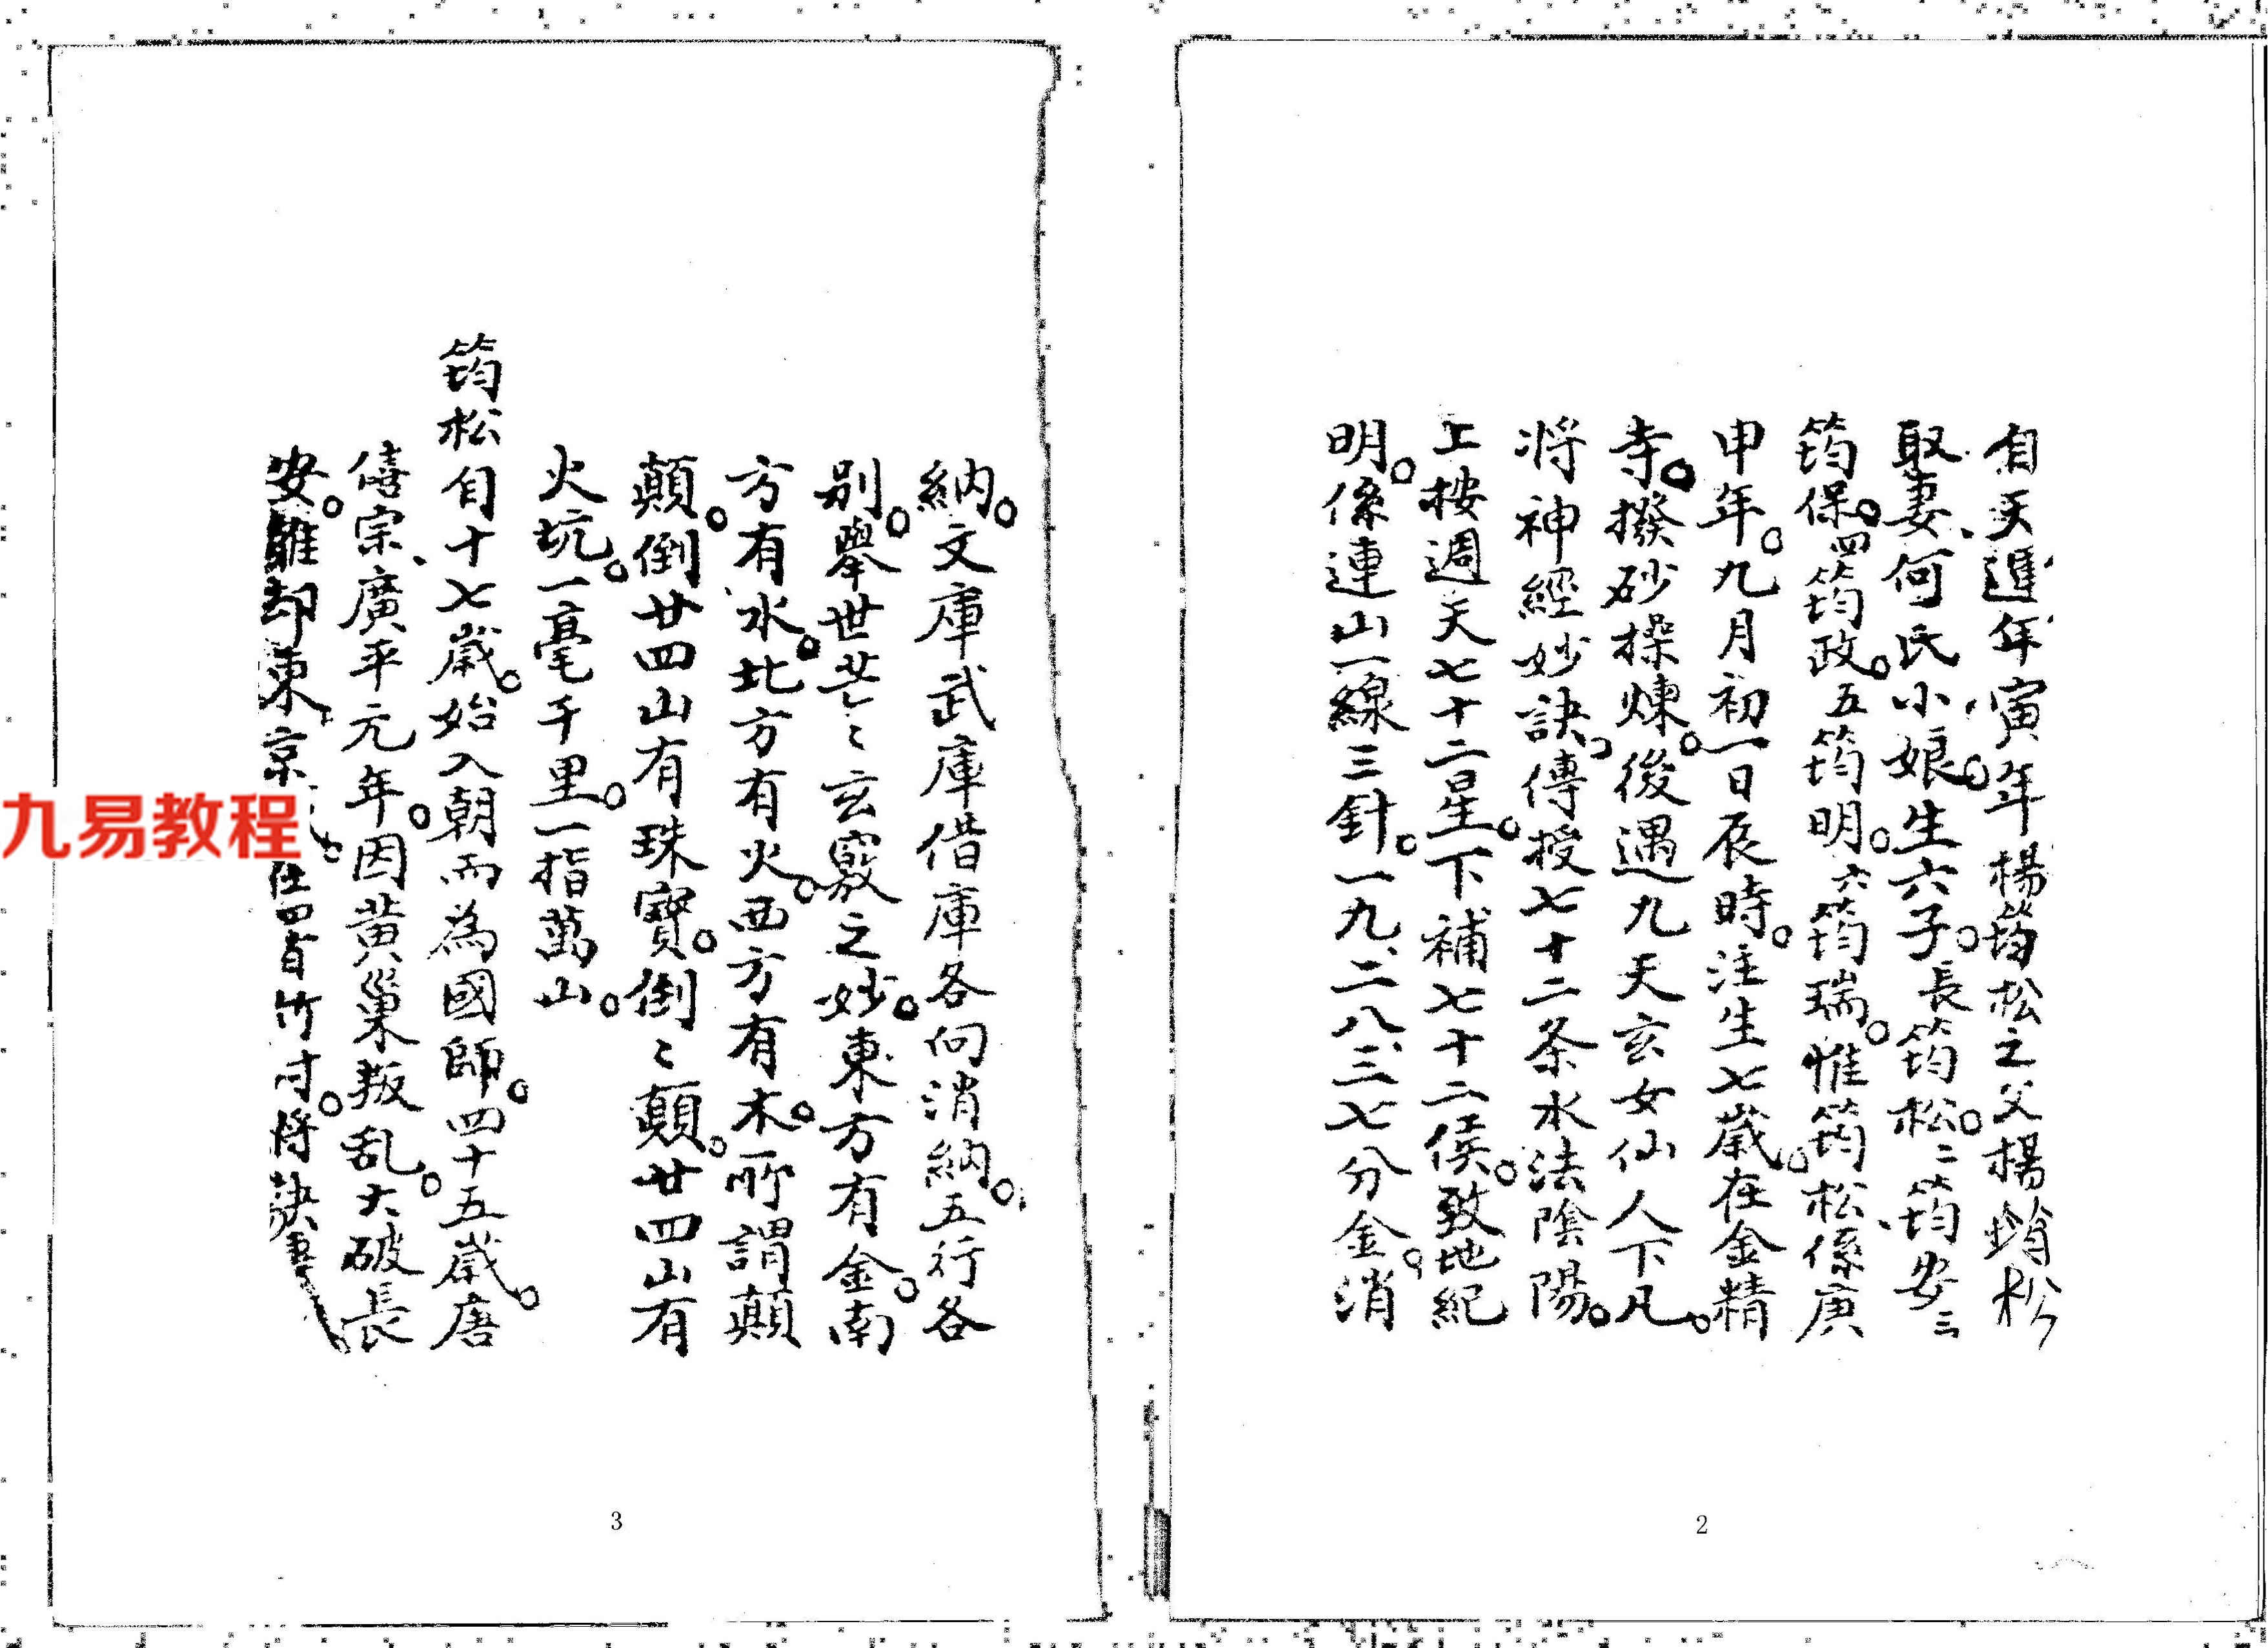 自天遁年寅年楊筠松之父楊筠松
取妻、何氏小娘。生六子。長筠松。二筠安三
筠保。四筠政。五筠明。六筠瑞。惟筠松、係庚
申年。九月初一日辰時。注生七歲。在金精
寺。撥砂操煉。後遇九天玄女仙人下凡。
将神經妙訣。傳授七十二条水法陰陽。
上按週天七十二星。下補七十二侯。致地紀
明。係連山一線三針。一九、二八、三七分金。消
2
納。文庫武庫借庫各向消納。五行各
别。舉世茫〻玄竅之妙。東方有金。南
方有水。北方有火。西方有木。所謂顛
顛。倒廿四山有珠寶。倒〻顛。廿四山有
火坑。一毫千里。一指萬山。
筠松自十七歲。始入朝而為國師。四十五歲。唐
僖宗、廣平元年。因黄巢叛乱。大破長
安。雖却東京
竹寸。将
3
九易教程